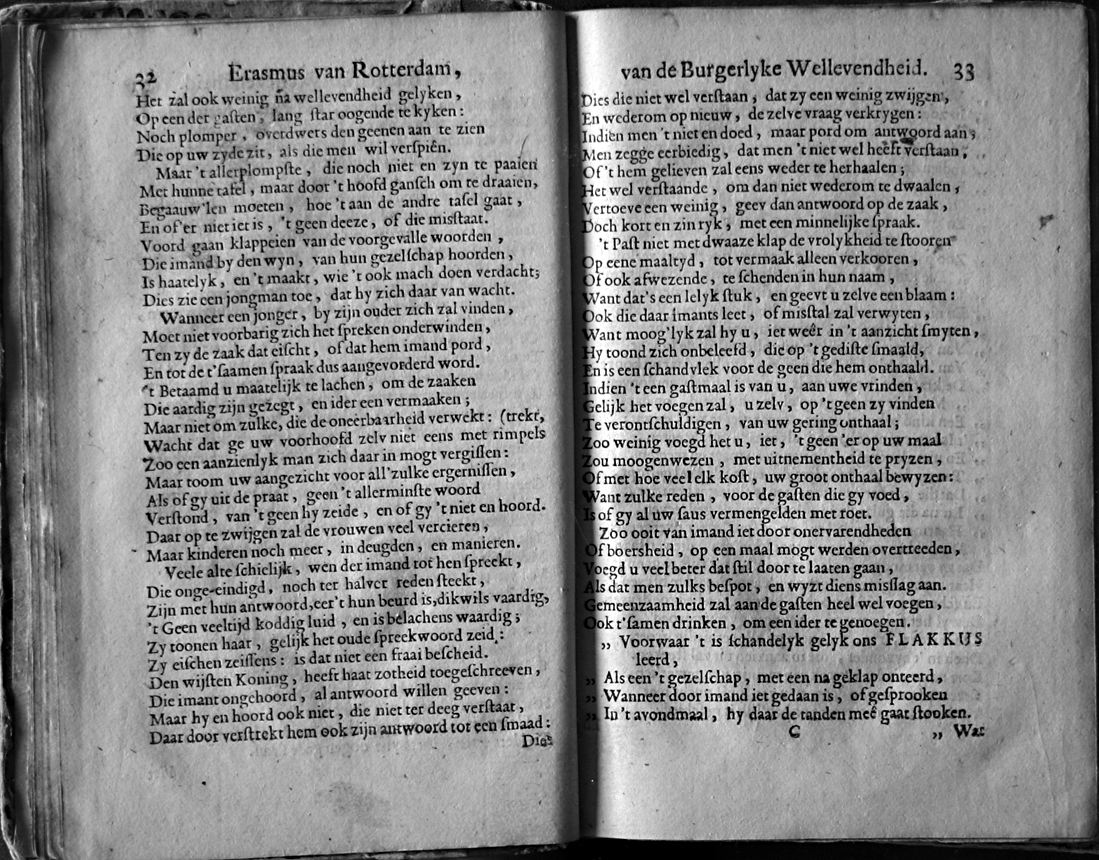 32 Erasmus van Rotterdam,
Het zal ook weinig na wellevendheid gelyken,
Op een der gasten, lang star oogende te kyken:
Noch plomper, overdwers den geenen aan te zien
Die op uw zyde zit, als die men wil verspiên.
Maar 't allerplompste, die noch niet en zyn te paaien
Met hunne tafel, maar door 't hoofd gansch om te draaien,
Begaauw'len moeten, hoe 't aan de andre tafel gaat,
En of'er niet iet is, 't geen deeze, of die misstaat.
Voord gaan klappeien van de voorgevalle woorden,
Die imand by den wyn, van hun gezelschap hoorden,
Is haatelyk, en 't maakt, wie 't ook mach doen verdacht;
Dies zie een jongman toe, dat hy zich daar van wacht.
Wanneer een jonger, by zijn ouder zich zal vinden,
Moet niet voorbarig zich het spreken onderwinden,
Ten zy de zaak dat eischt, of dat hem imand pord,
En tot de t'saamen spraak dus aangevorderd word.
't Betaamd u maatelijk te lachen, om de zaaken
Die aardig zijn gezegt, en ider een vermaaken;
Maar niet om zulke, die de oneerbaarheid verwekt: (trekt,
Wacht dat ge uw voorhoofd zelv niet eens met rimpels
Zoo een aanzienlyk man zich daar in mogt vergissen:
Maar toom uw aangezicht voor all'zulke ergernissen,
Als of gy uit de praat, geen 't allerminste woord
Verstond, van 't geen hy zeide, en of gy 't niet en hoord.
Daar op te zwijgen zal de vrouwen veel vercieren,
Maar kinderen noch meer, in deugden, en manieren.
Veele al te schielijk, wen der imand tot hen spreekt,
Die onge-eindigd, noch ter halver reden steekt,
Zijn met hun antwoord, eer't hun beurd is, dikwils vaardig,
't Geen veeltijd koddig luid, en is belachens waardig;
Zy toonen haar, gelijk het oude spreekwoord zeid:
Zy eischen zeissens: is dat niet een fraai bescheid.
Den wijsten Koning, heeft haat zotheid toegeschreeven,
Die imant ongehoord, al antwoord willen geeven:
Maar hy en hoord ook niet, die niet ter deeg verstaat,
Daar door verstrekt hem ook zijn antwoord tot een smaad:
Dies
van de Burgerlyke Wellevendheid. 33
Dies die niet wel verstaan, dat zy een weinig zwijgen,
En wederom op nieuw, de zelve vraag verkrygen:
Indien men 't niet en doed, maar pord om antwoord aan,
Men zegge eerbiedig, dat men 't niet wel heeft verstaan,
Of 't hem gelieven zal eens weder te herhaalen;
Het wel verstaande, om dan niet wederom te dwaalen,
Vertoeve een weinig, geev dan antwoord op de zaak,
Doch kort en zin ryk, met een minnelijke spraak.
't Past niet met dwaaze klap de vrolykheid te stooren
Op eene maaltyd, tot vermaak alleen verkooren,
Of ook afwezende, te schenden in hun naam,
Want dat's een lelyk stuk, en geevt u zelve een blaam:
Ook die daar imants leet, of misstal zal verwyten,
Want moog'lyk zal hy u, iet weêr in 't aanzicht smyten,
Hy toond zich onbeleefd, die op 't gediste smaald,
En is een schandvlek voor de geen die hem onthaald.
Indien 't een gastmaal is van u, aan uwe vrinden,
Gelijk het voegen zal, u zelv, op 't geen zy vinden
Te verontschuldigen, van uw gering onthaal;
Zoo weinig voegd het u, iet, 't geen 'er op uw maal
Zou moogen wezen, met uitnementheid te pryzen,
Of met hoe veel elk kost, uw groot onthaal bewyzen:
Want zulke reden, voor de gasten die gy voed,
Is of gy al uw saus vermengelden met roet.
Zoo ooit van imand iet door onervarendheden
Of boersheid, op een maal mogt werden overtreeden,
Voegd u veel beter dat stil door te laaten gaan,
Als dat men zulks bespot, en wyzt diens misslag aan.
Gemeenzaamheid zal aan de gasten heel wel voegen,
Ook t'samen drinken, om een ider te genoegen.
„ Voorwaar 't is schandelyk gelyk ons FLAKKUS
leerd,
„ Als een 't gezelschap, met een na geklap onteerd,
„ Wanneer door imand iet gedaan is, of gesprooken
„ In 't avondmaal, hy daar de tanden meê gaat stooken.
C „ Wat